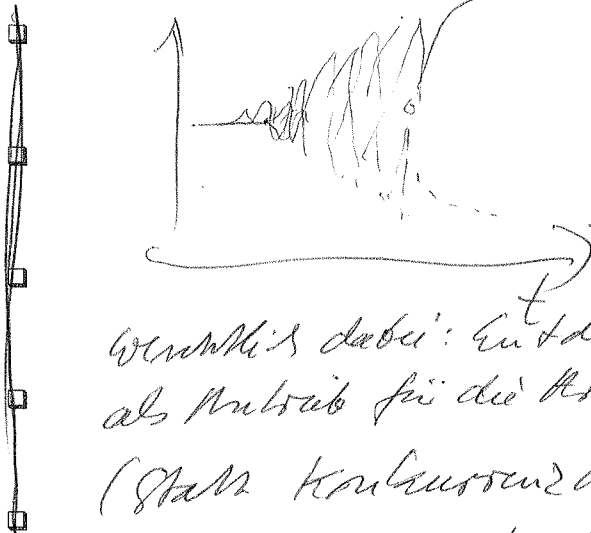 t
wesentlich dabei: Entd
als Antrieb für die Ar
(statt Konkurrenz